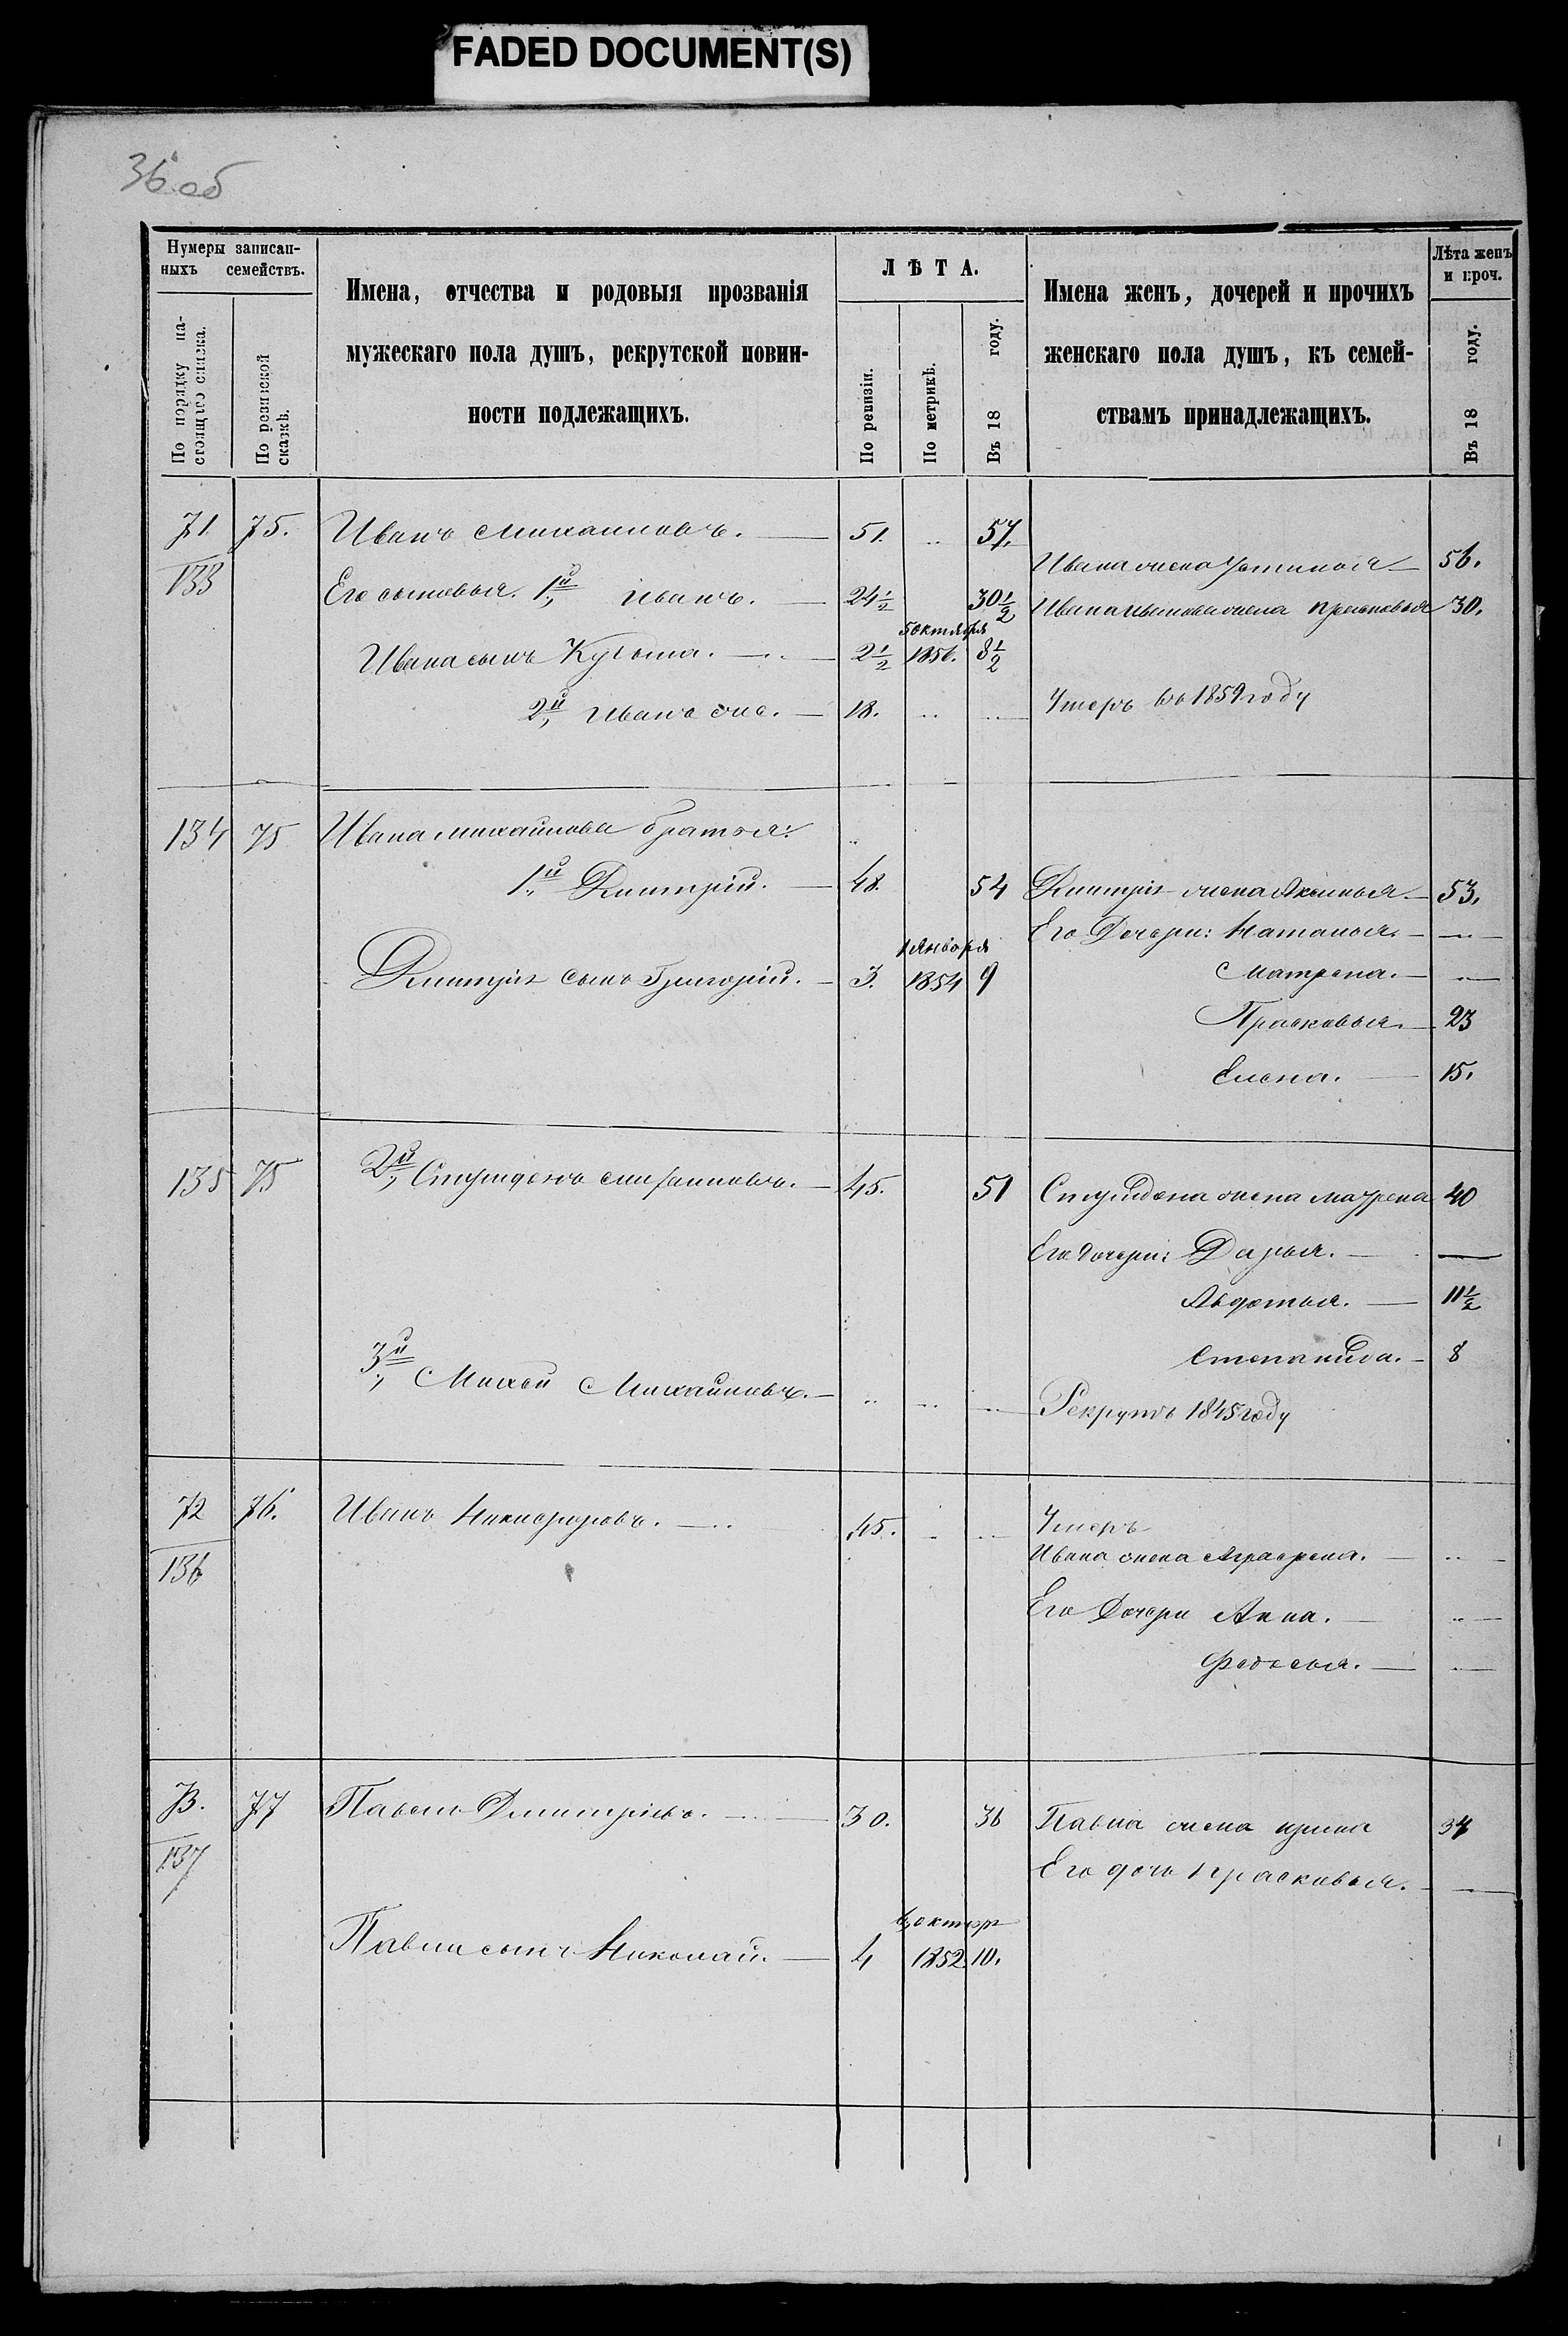 FADED DOCUMENT(S)
36 об
Нумеры записан-
ныхъ семействъ.
По порядку на-
стоящаго списка.
По ревизской
сказкѣ.
Имена, отчества и родовыя прозванія
мужескаго пола душъ, рекрутской повин-
ности подлежащихъ.
ЛѢТА.
По ревизіи.
По метрикѣ.
Въ 18 году.
Имена женъ, дочерей и прочихъ
женскаго пола душъ, къ семей-
ствамъ принадлежащихъ.
Лѣта женъ
и проч.
Въ 18 году.
71. 75. Иванъ Михаиловъ. 51. 57.
133
Ивана жена Устинья 56.
Его сыновья. 1й Иванъ. 24½ 30½ Ивана Иванова жена Прасковья 30.
5 октября
Ивана сынъ Кузьма. 2½ 1856. 8½
2й Иванъ же. 18. Умеръ въ 1859 году
134 75 Ивана Михайлова братья:
1й Дмитрій. 48. 54 Дмитрія жена Аксинья 53.
Его Дочери: Наталья.
1 Января
Дмитрія сынъ Григорій. 3. 1854 9 Матрена.
Прасковья. 23
Елена. 15.
135 75 2й Михаиловъ. 45. 51 жена 40
Его дочери: Дарья.
Авдотья. 11½
Степанида. 8
3й Михайловъ.
Рекрутъ 1845 году
72 76. Иванъ Никифоровъ. 45. Умеръ
136 Ивана жена Аграфена.
Его Дочери Анна.
Федосья.
73. 77 Павелъ Дмитріевъ. 30. 36 Павла жена Ирина 34
137
Его дочь Прасковья.
6 октяр
Павла сынъ Николай. 4 1852 10.